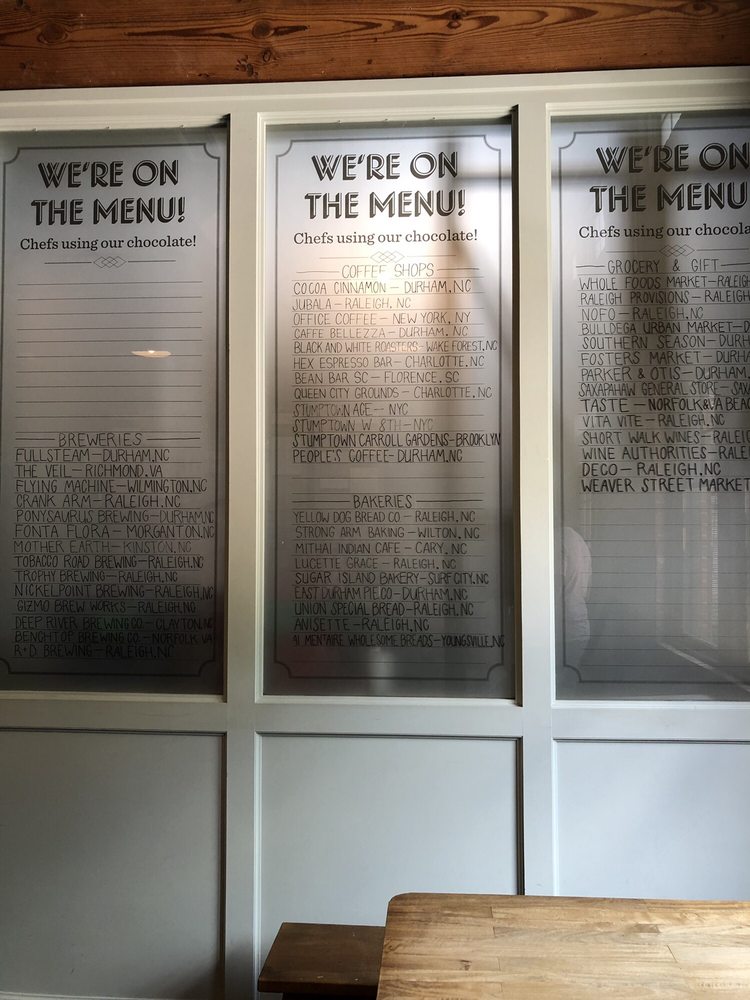 WE'RE ON
THE MENU!
Chefs using our chocolate!
BREWERIES
FULLSTEAM-DURHAM,NC
THE VEIL-RICHMOND,VA
FLYING MACHINE-WILMINGTON,NC
CRANK ARM-RALEIGH,NC
PONYSAURUS BREWING-DURHAM,NC
FONTA FLORA-MORGANTON,NC
MOTHER EARTH-KINSTON,NC
TOBACCO ROAD BREWING-RALEIGH,NC
TROPHY BREWING-RALEIGH,NC
NICKELPOINT BREWING-RALEIGH,NC
GIZMO BREW WORKS-RALEIGH,NC
DEEP RIVER BREWING CO.-CLAYTON,NC
BENCHTOP BREWING CO.-NORFOLK,VA
R+D. BREWING-RALEIGH,NC
WE'RE ON
THE MENU!
Chefs using our chocolate!
COFFEE SHOPS
COCOA CINNAMON-DURHAM,NC
JUBALA-RALEIGH,NC
OFFICE COFFEE-NEW YORK,NY
CAFFE BELLEZZA-DURHAM,NC
BLACK AND WHITE ROASTERS-WAKE FOREST,NC
HEX ESPRESSO BAR-CHARLOTTE,NC
BEAN BAR SC-FLORENCE,SC
QUEEN CITY GROUNDS-CHARLOTTE,NC
STUMPTOWN ACE-NYC
STUMPTOWN W 8TH-NYC
STUMPTOWN CARROLL GARDENS-BROOKLYN
PEOPLE'S COFFEE-DURHAM,NC
BAKERIES
YELLOW DOG BREAD CO-RALEIGH,NC
STRONG ARM BAKING-WILTON,NC
MITHAI INDIAN CAFE-CARY,NC
LUCETTE GRACE-RALEIGH,NC
SUGAR ISLAND BAKERY-SURF CITY,NC
EAST DURHAM PIE CO-DURHAM,NC
UNION SPECIAL BREAD-RALEIGH,NC
ANISETTE-RALEIGH,NC
MENTAIRE WHOLESOME BREADS-YOUNGSVILLE,NC
WE'RE ON
THE MENU
Chefs using our chocola
GROCERY & GIFT
WHOLE FOODS MARKET-RALEIGH
RALEIGH PROVISIONS-RALEIGH
NOFO-RALEIGH,NC
BULLDEGA URBAN MARKET-D
SOUTHERN SEASON-DURH
FOSTERS MARKET-DURHA
PARKER & OTIS-DURHAM,
SAXAPAHAW GENERAL STORE-SAX
TASTE-NORFOLK&VA BEAC
VITA VITE-RALEIGH,NC
SHORT WALK WINES-RALEIG
WINE AUTHORITIES-RALEIG
DECO-RALEIGH,NC
WEAVER STREET MARKET